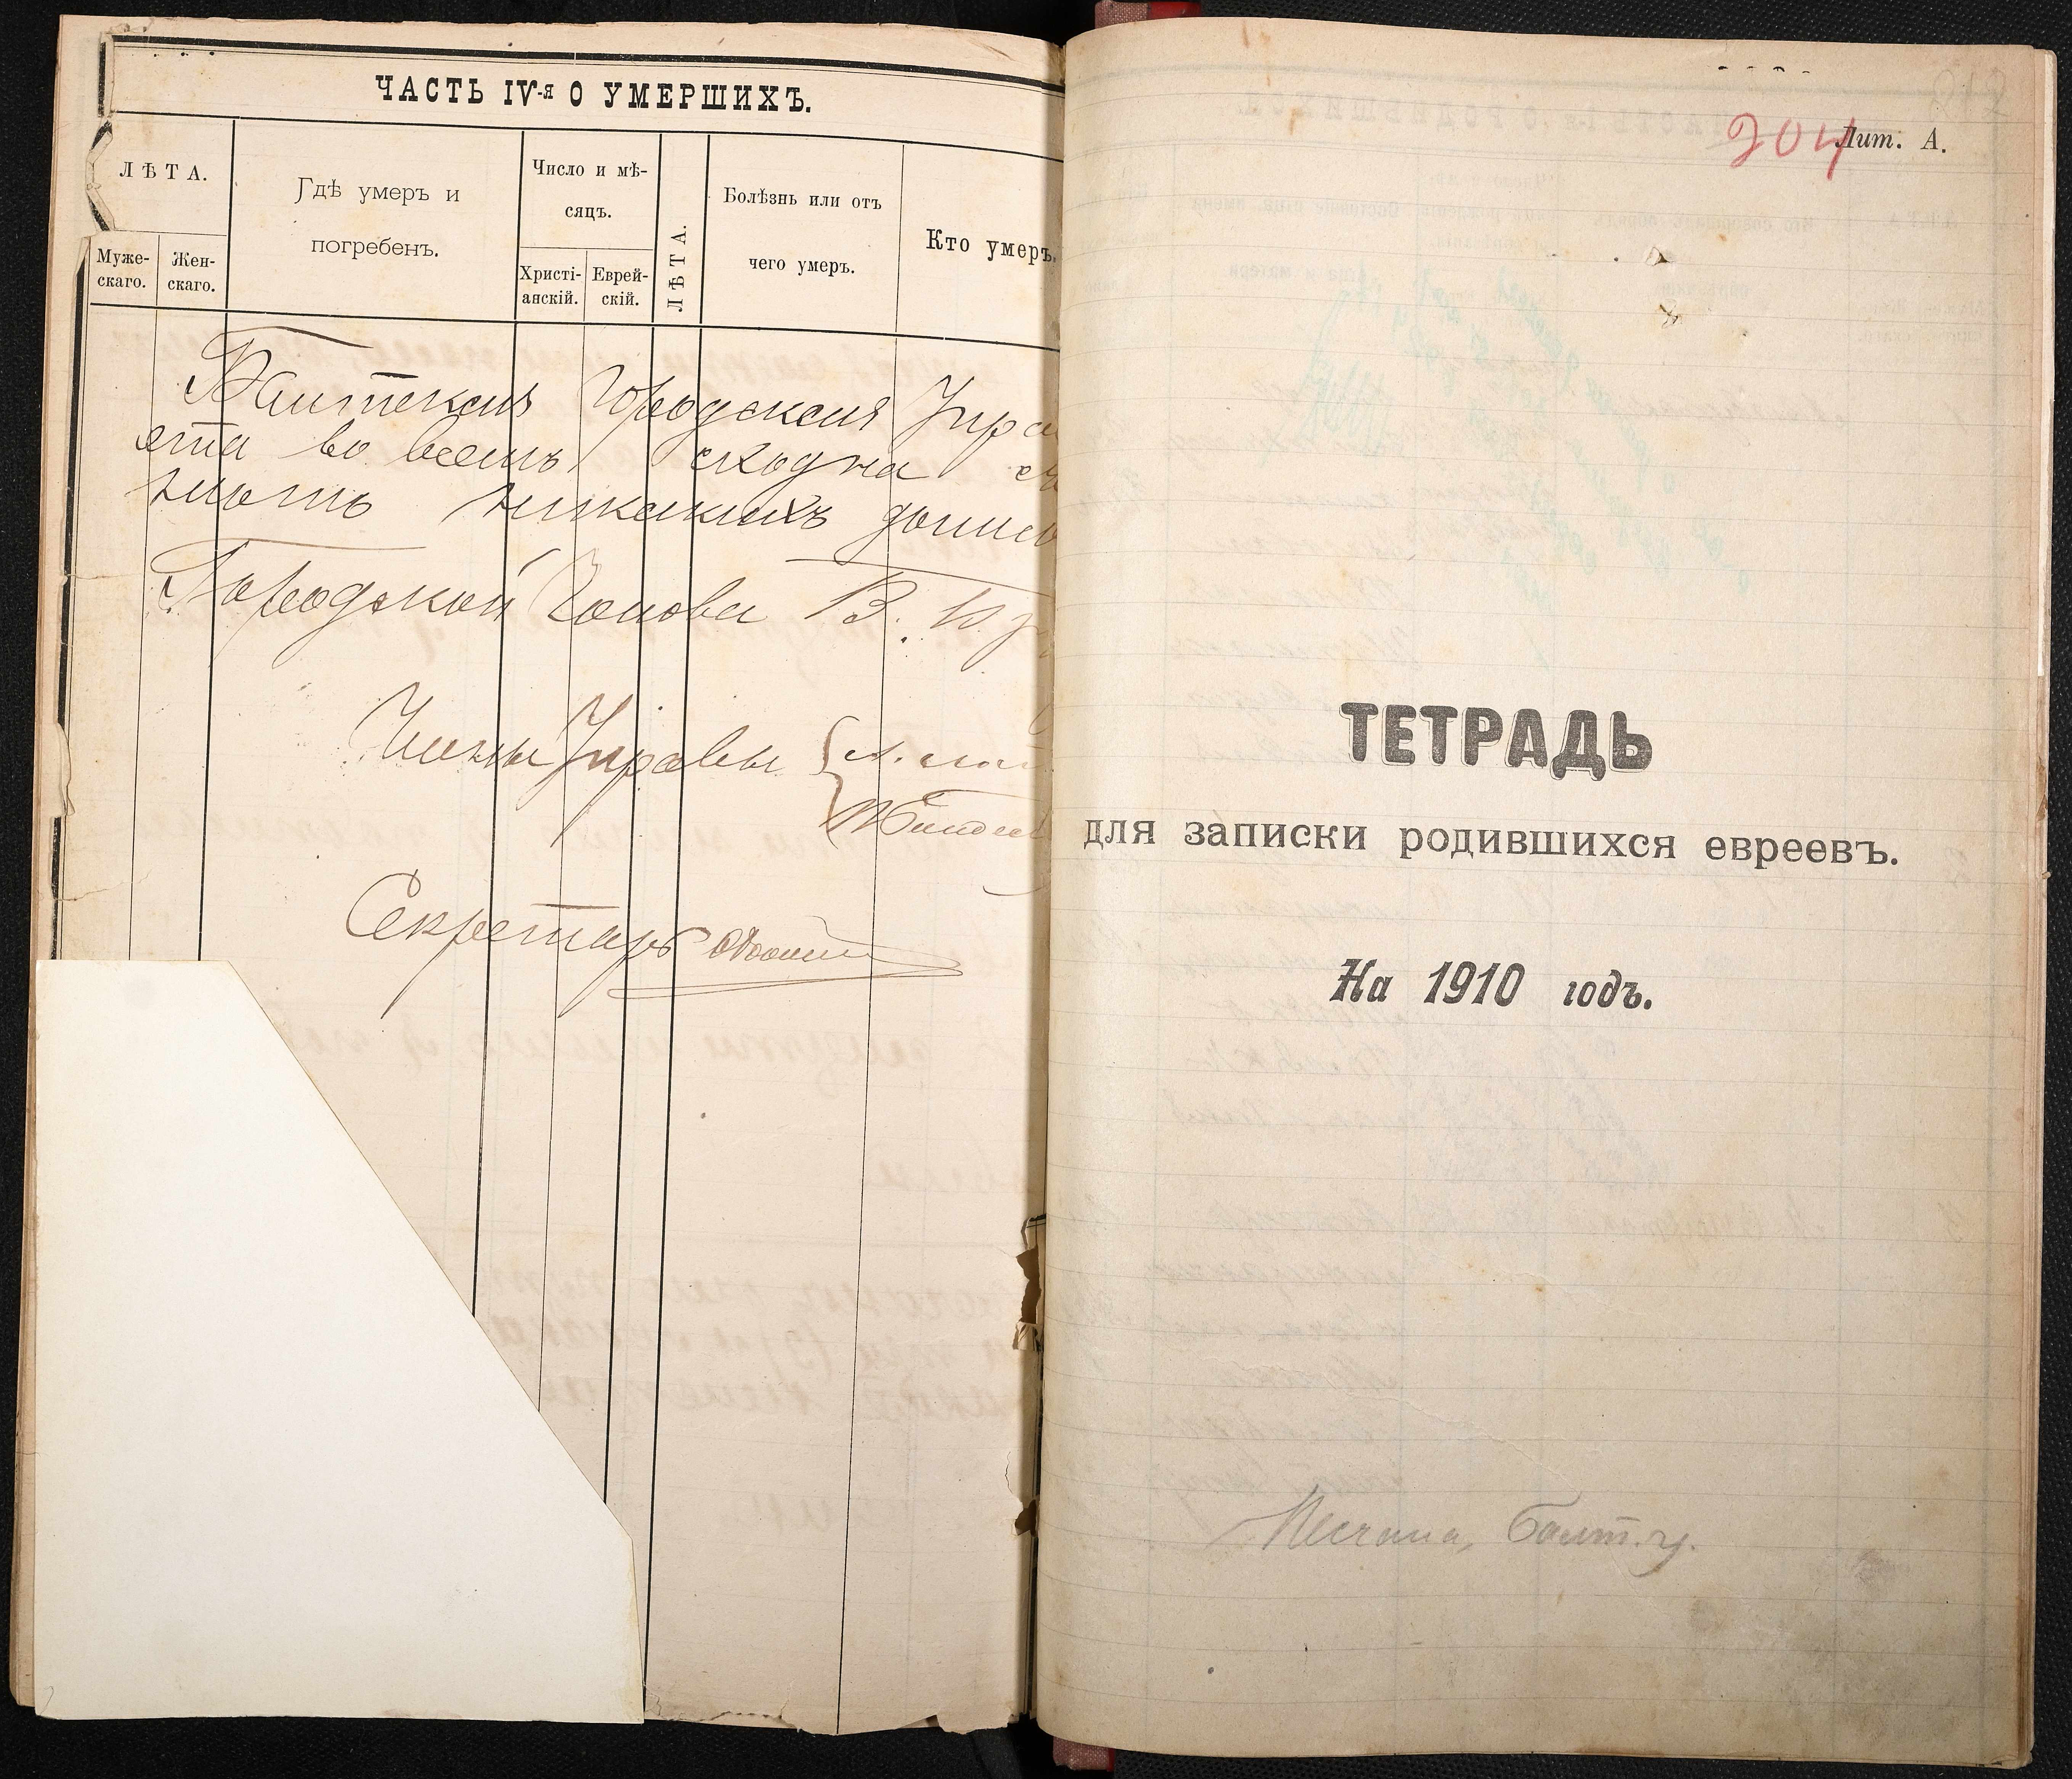 ЧАСТЬ IV-я О УМЕРШИХЪ.
ЛѢТА.
Муже-
скаго.
Жен-
скаго.
Гдѣ умеръ и
погребенъ.
Число и мѣ-
сяцъ.
Христі-
анскій.
Еврей-
скій.
ЛѢТА.
Болѣзнь или отъ
чего умеръ.
Кто умеръ.
Балтская Городская Упра
ета во всемъ сходна съ
никакихъ
Городской Голова В.
Члены Управы
Секретарь
204
Лит. А.
ТЕТРАДЬ
для записки родившихся евреевъ.
На 1910 годъ.
Песчана, Балт. у.